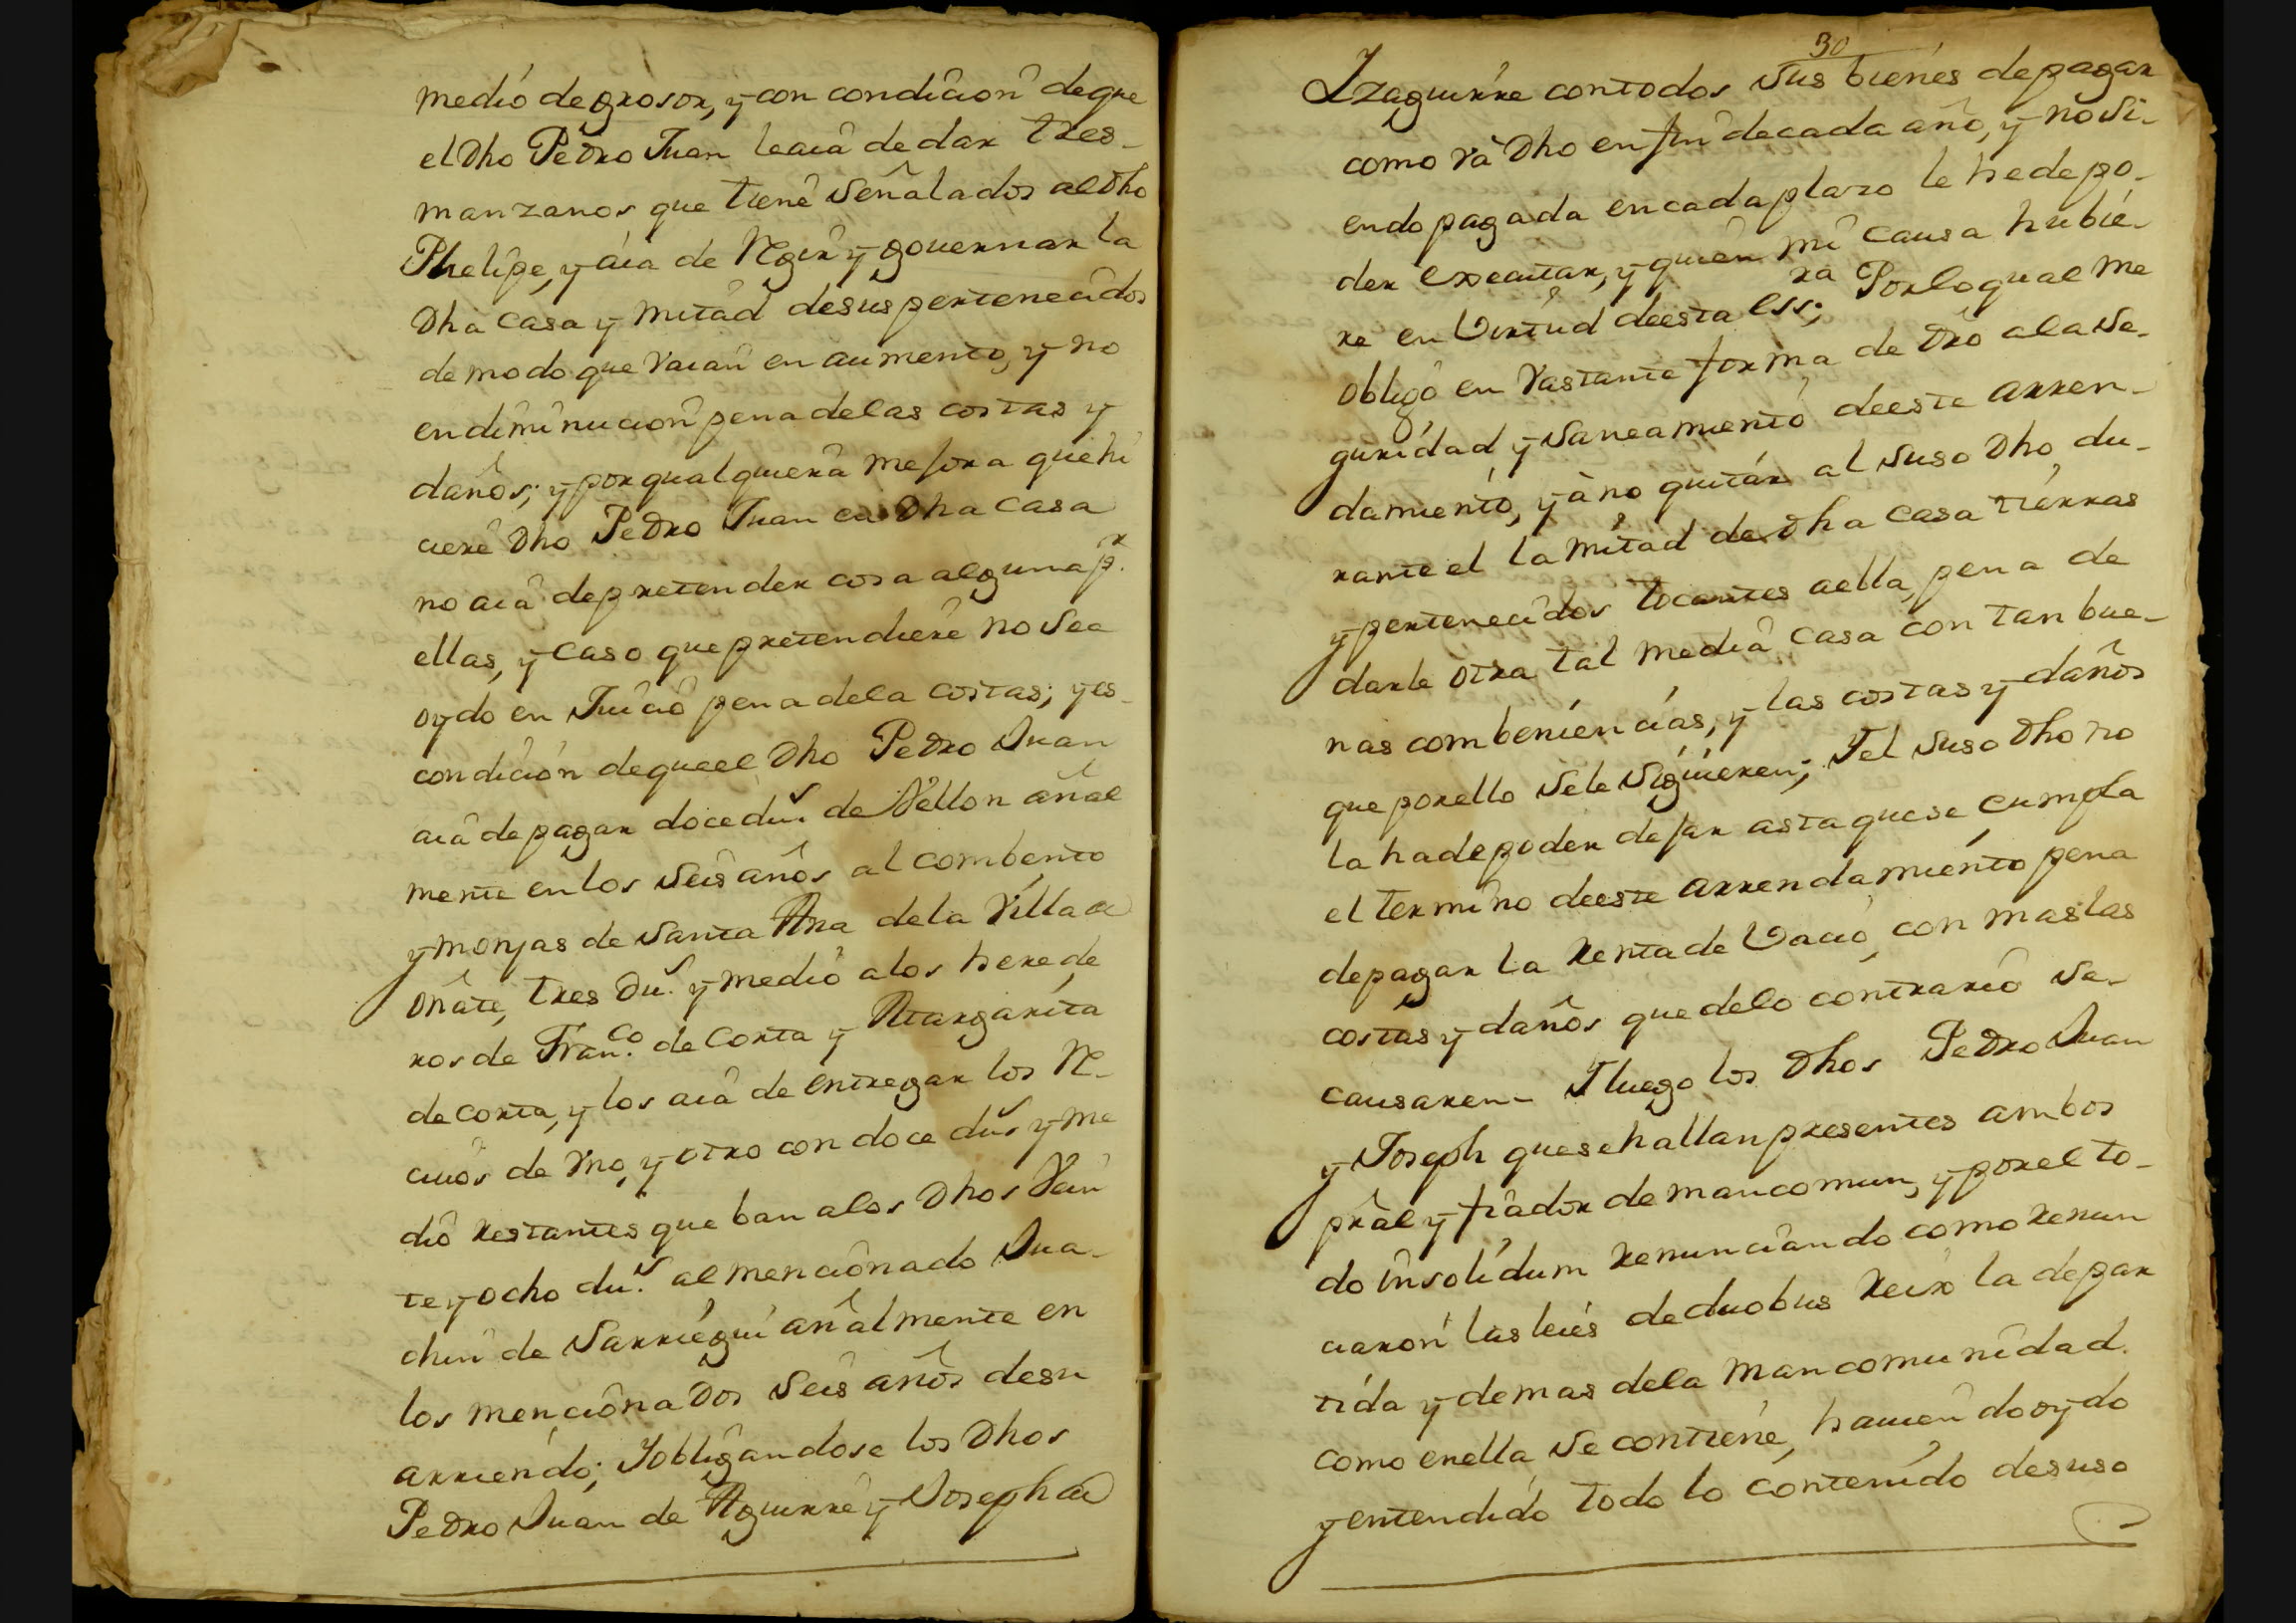 medio de grosor, y con condicion deque
el dho Pedro Juan leaia de dar tres
manzanos que tiene señalados al dho
Phelipe, y aia de Regir y governar la
dha casa y mitad desus pertenecidos
de modo que vaian en aumento, y no
en diminucion pena delas costas y
daños; y por qualquiera mejora que hi
ciere dho Pedro Juan en dha casa
no aia de pretender cosa alguna pr.
ellas, y caso que pretendiere no sea
oydo en Juicio pena dela costas; y es
condicion dequeel dho Pedro Juan
aia de pagar doce dus de Vellon añal
mente en los seis años al combento
y monjas de Santa Ana dela Villa de
oñate, tres dus. y medio alos herede
ros de Franco. de Corta y Margarita
de corta, y los aia de entregar los Re-
civos de vno, y otro con doce dus y me
dio restantes que ban alos dhos Vein
te y ocho dus. al mencionado Jua-
chin de Sarriegui añalmente en
los mencionados seis años desu
arriendo; Y obligandose los dhos
Pedro Juan de Aguirre y Joseph de
30
Izaguirre contodos sus bienes de pagar
como va dho en fin decada año, y no si-
endo pagada en cada plazo le he de po-
der executar, y quien mi causa hubie-
re en Virtud deesta essra; Porloqual me
obligo en vastante forma de dro ala se-
guridad y saneamiento deeste arren-
damiento, y à no quitar al suso dho du-
rante el la mitad de dha casa tierras
y pertenecidos tocantes aella, pena de
darle otra tal media casa con tan bue-
nas combeniencias, y las costas y daños
que porello sele siguieren; Y el suso dho no
la hade poder dejar asta quese cumpla
el termino deeste arrendamiento pena
depagar la Renta de Vacio, con maslas
costas y daños que delo contrario se
causaren- Y luego los dhos Pedro Juan
y Joseph quesehallan presentes ambos
pral y fiador de mancomun, y porel to-
do insolidum Renunciando como Renun
ciaron las leies de duobus Reix la de par
tida y demas dela mancomunidad.
como enella se contiene, havien do oydo
y entendido todo lo contenido desuso